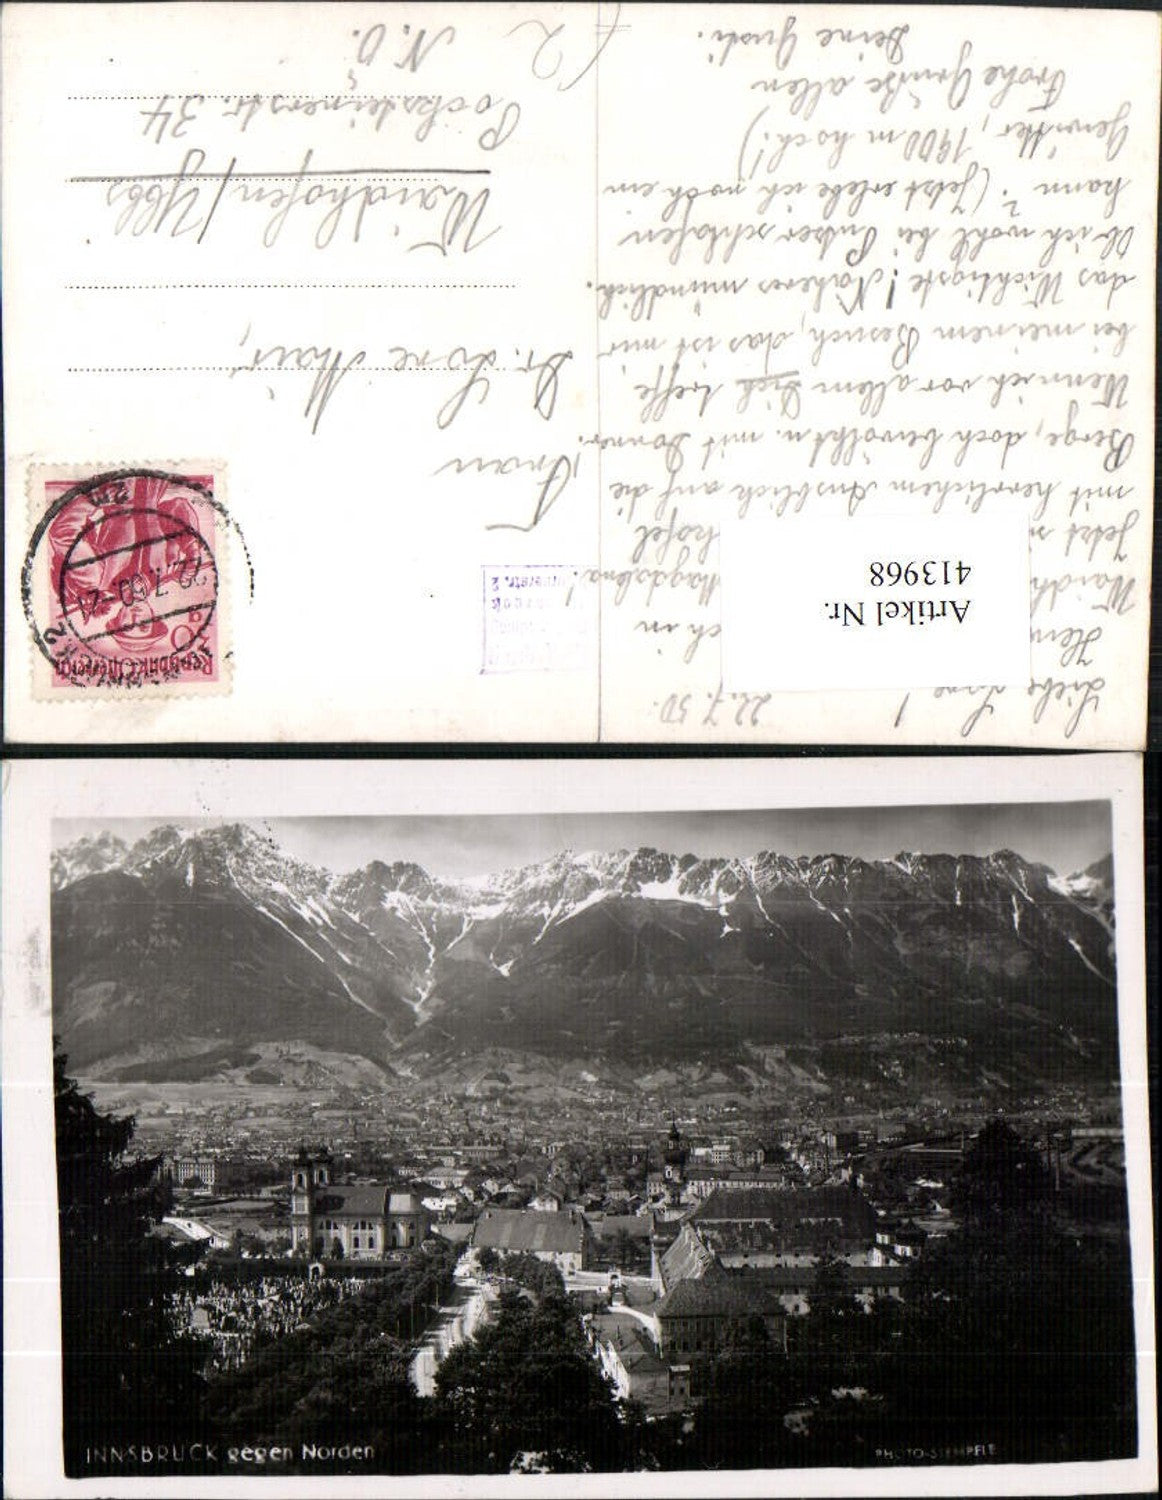 22.7.50.
Liebe Lore!
ch in
Jetzt
mit herrlichem Ausblick auf die
Berge, doch bewölkt u. mit Donner.
Wenn ich vor allem Dich treffe
bei meinem Besuch, das ist mir
das Wichtigste! Näheres mündlich.
Ob ich wohl bei schlafen
kann? (Jetzt erlebe ich noch ein
Gewitter, 1900 m hoch!)
Frohe Grüße allen
Deine Gusti.
Artikel Nr.
413968
Republik Österreich
22.7.50-21
Frau
Dr. Lore Mair,
Waidhofen/Ybbs
Pocksteinerstr. 34
N.Ö.
INNSBRUCK gegen Norden
PHOTO-STEMPFLE